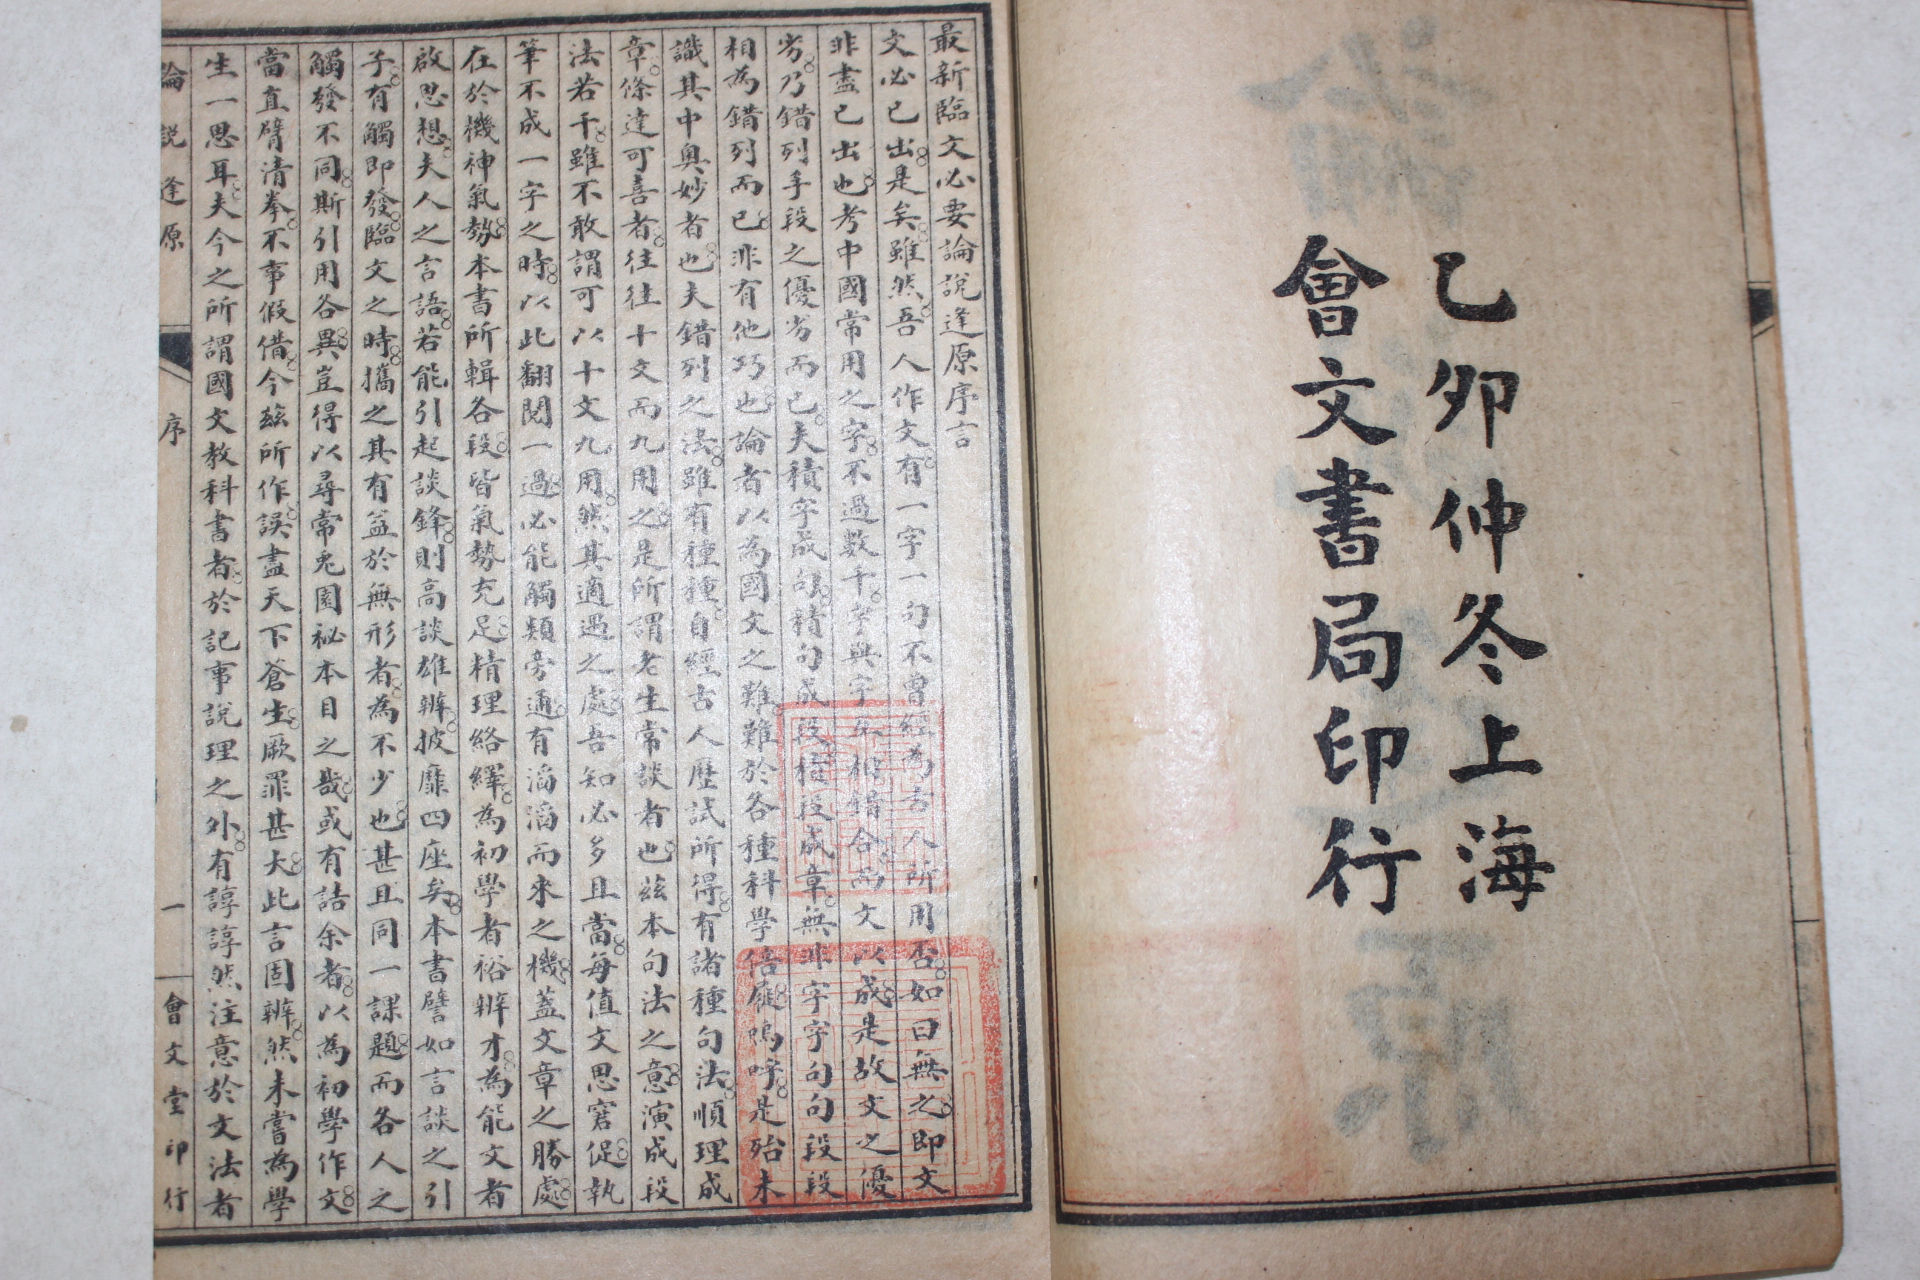 乙夘仲冬上海
會文書局印行
最新臨文必要論說逢原序言
文必已出是矣雖然吾人作文有一字一句不曾經為古人所用否如曰無之即文
非盡已出也考中國常用之字不過數千字與字互相錯合而文以成是故文之優
劣乃錯列手段之優劣而已夫積字成句積句成段積段成章無非字字句句段段
相為錯列而已非有他巧也論者以為國文之難難於各種科學倍蓰嗚呼是殆未
識其中奥妙者也夫錯列之法雖有種種自經古人歷試所得有諸種句法順理成
章條達可喜者往往十文而九用之是所謂老生常談者也茲本句法之意演成段
法若干雖不敢謂可以十文九用然其適遇之處吾知必多且當每值文思窘促執
筆不成一字之時以此翻閱一過必能觸類旁通有滔滔而來之機蓋文章之勝處
在於機神氣勢本書所輯各段皆氣勢充足精理絡繹為初學者裕辨才為能文者
啟思想夫人之言語若能引起談鋒則高談雄辨披靡四座矣本書譬如言談之引
子有觸即發臨文之時攜之其有益於無形者為不少也甚且同一課題而各人之
觸發不同斯引用各異豈得以尋常兎園祕本目之哉或有詰余者以為初學作文
當直臂清拳不事假借今茲所作誤盡天下蒼生厥罪甚大此言固辨然未嘗為學
生一思耳夫今之所謂國文教科書者於記事說理之外有諄諄然注意於文法者
論說逢原
序
一
會文堂印行